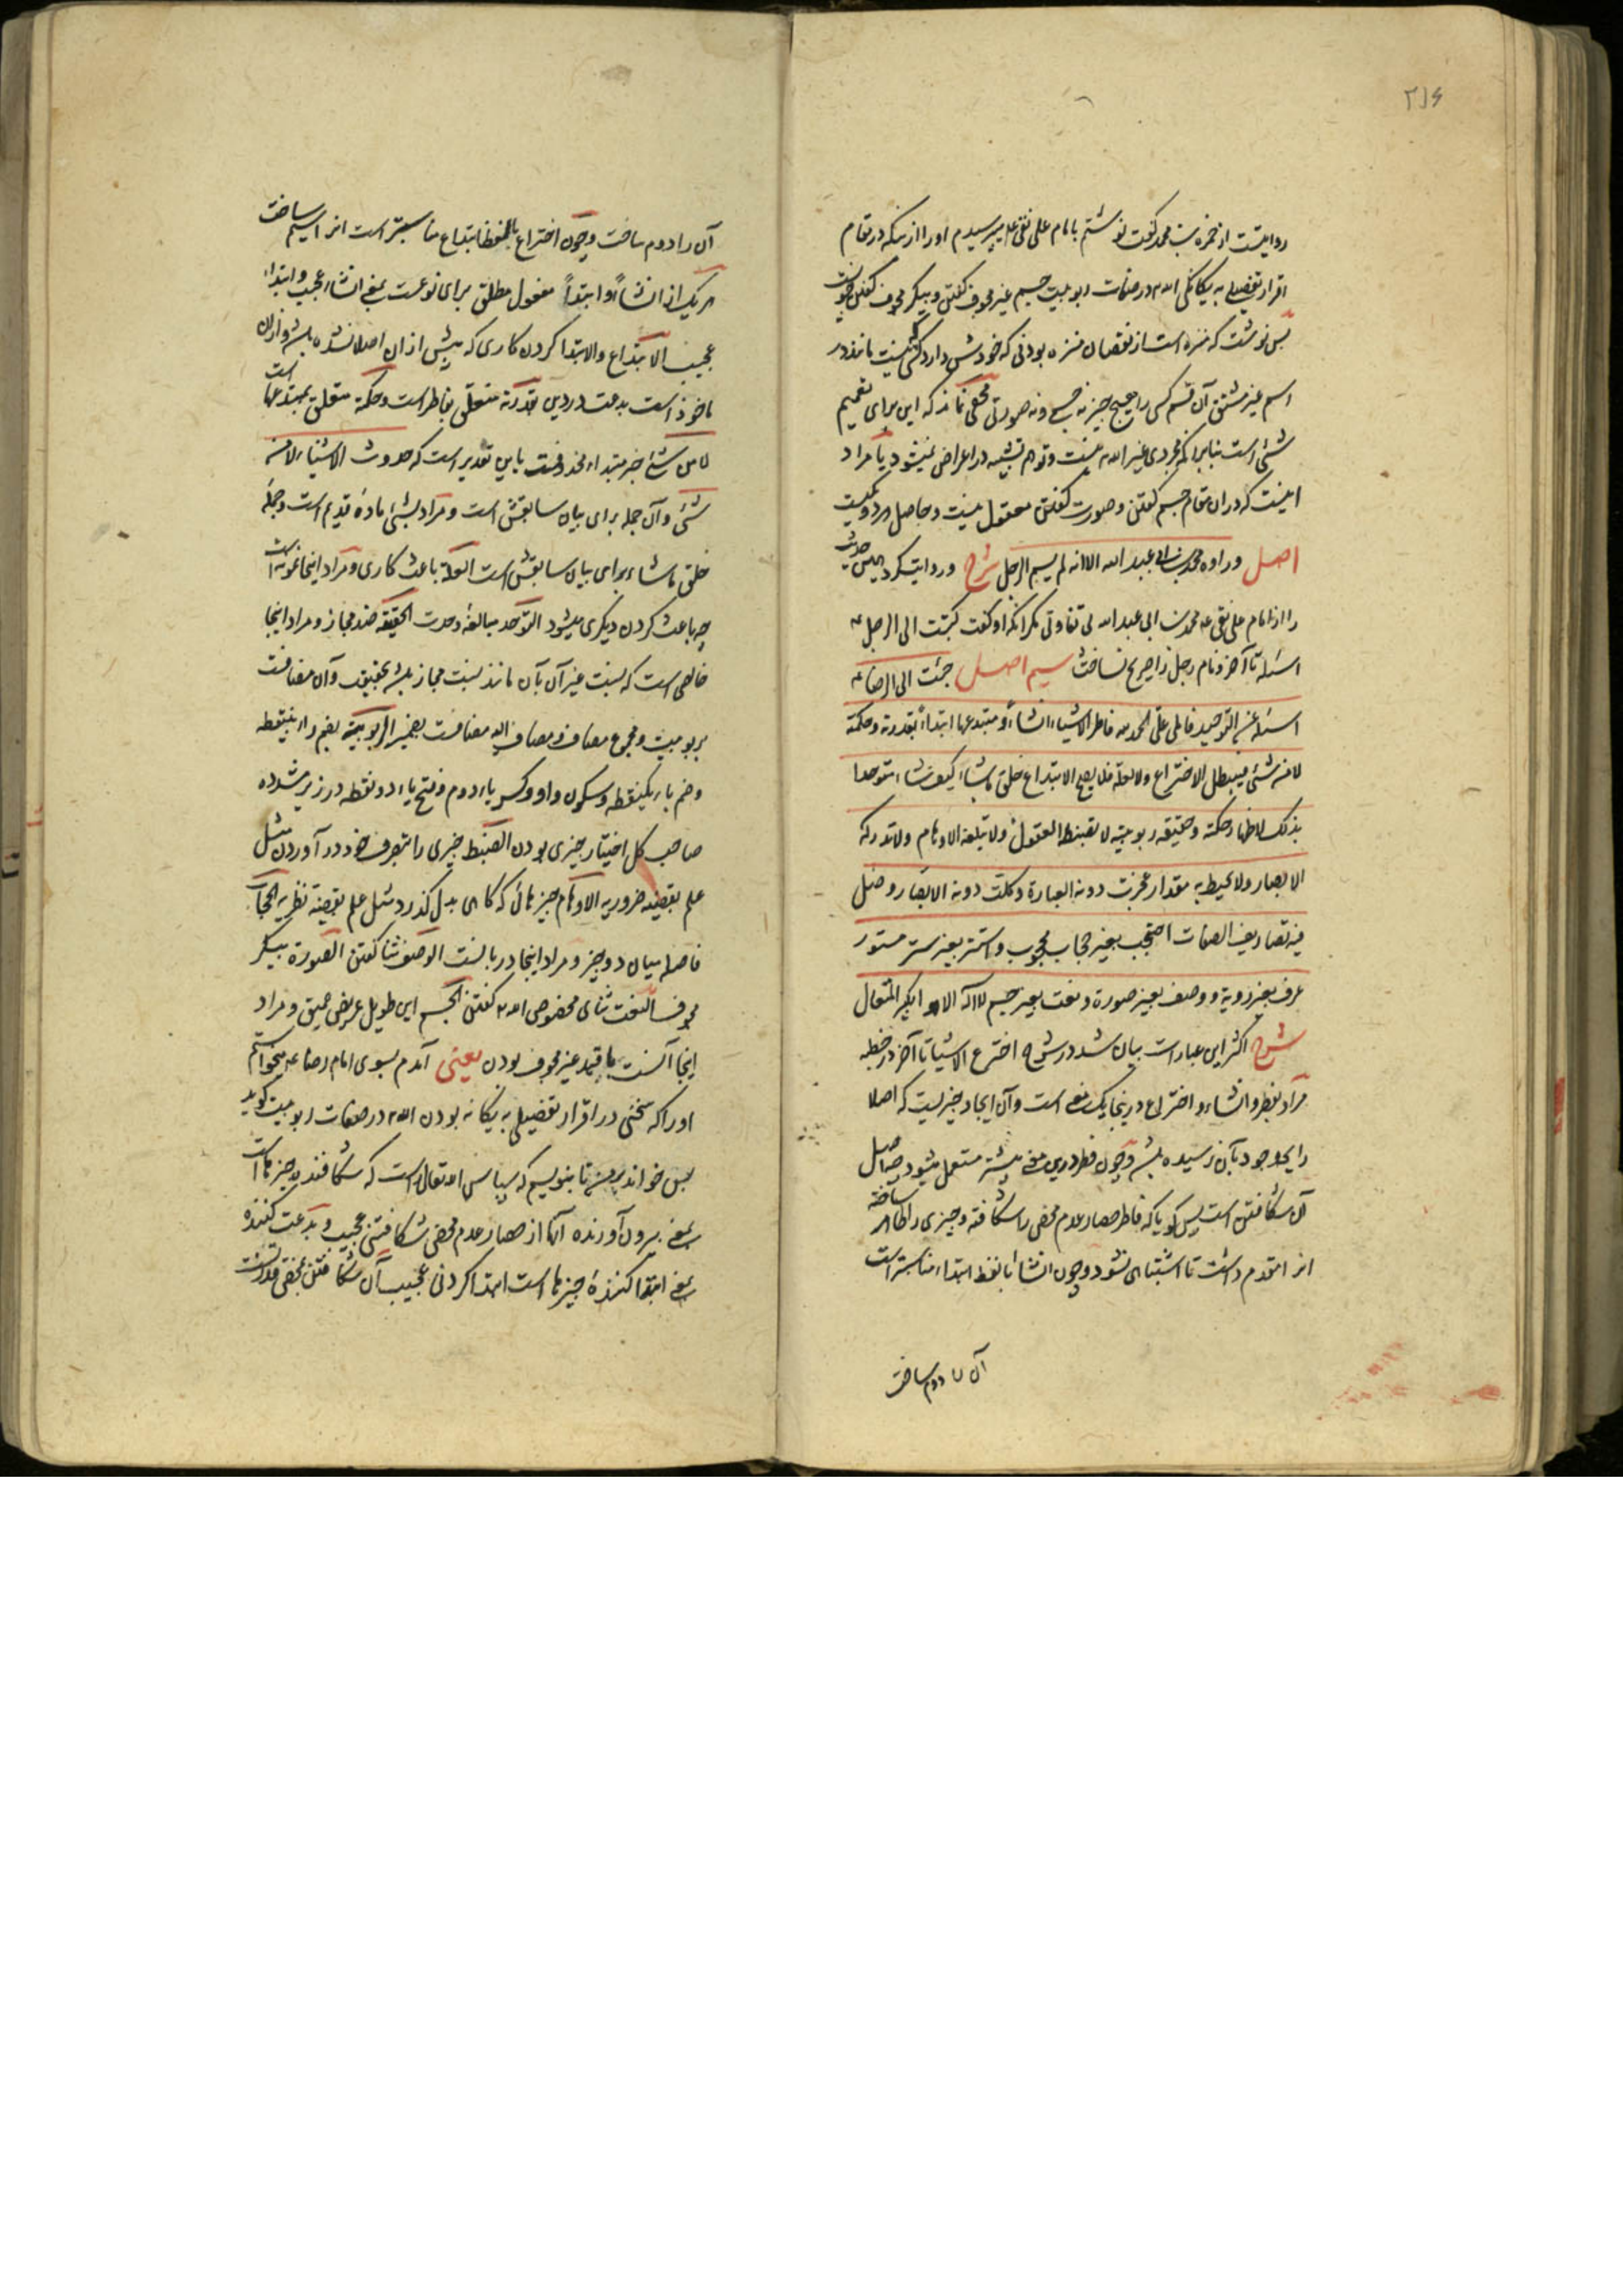 ۲۱۶
روایتست از حمزه بن محمد گفت نوشتم بامام علی نقی علیه پرسیدم او را از نیکه در مقام
اقرار تفضیلی به یکانکی الله در صفات ربوبیت جسم غیر مجوف گفتن و بیکر مجوف گفتن
پس نوشت که منزه است از نقصان منزه بودنی که خودش دارد کسی نیست مانند در
اسم غیر مشتق آن قسم کسی را هیچ چیز نه جسم و نه صورتی مخفی نماند که این برای تعمیم
شئ است بنابر آنکه مجردی غیر الله نیست و توهم تشبیه در اعراض نمیشود یا مراد
اینست که در آن مقام جسم گفتن و صورت گفتن معقول نیست و حاصل هر دو یکیست
اصل و رواه محمد بن ابی عبد الله الا انه لم یسم الرجل شرح و روایت کرد این حدیث
را از امام علی نقی ع محمد بن ابی عبد الله بی تفاوتی مگر آنکه او گفت کتبت الی الرجل ع
اسئله تا آخر و نام رجل را صریح نساخت سیم اصل جئت الی الرضا ع
اسئله عن التوحید فاملی علی الحمد لله فاطر الاشیاء انشاءً و مبتدعها ابتداءً بقدرته و حکمته
لا من شئ فیبطل الاختراع و لا لعلة فلا یصح الابتداع خلق ما شاء کیف شاء متوحدا
بذلک لاظهار حکمته و حقیقه ربوبیته لا تضبطه العقول و لا تبلغه الاوهام و لا تدرکه
الابصار و لا یحیط به مقدار عجزت دونه العبارة و کلت دونه الابصار و ضل
فیه تصاریف الصفات احتجب بغیر حجاب محجوب و استتر بغیر ستر مستور
عرف بغیر رویة و وصف بغیر صورة و نعت بغیر جسم لا اله الا هو الکبیر المتعال
شرح اکثر این عبارات بیان شد در شرح اخترع الاشیا تا آخر در خطبه
مراد بفطر و انشاء و اختراع در ینجا یک معنی است و آن ایجاد چیزیست که اصلا
رایحه وجود بآن نرسیده باشد و چون فطر در این معنی بیشتر مستعمل میشود و اصل
آن شکافتن است پس گویا که فاطر حصار عدم محض را شکافته و چیزی را ظاهر ساخته
انرا مقدم داشت تا اشتباهی نشود و چون انشا بلفظ ابتداء مناسبتر است
آن را دوم ساخت
آن را دوم ساخت و چون اختراع بلفظ ابتداع مناسبتر است انرا سیم ساخت
هر یک از انشاءً و ابتداءً مفعول مطلق برای نوعست بمعنی انشاء عجیب و ابتداء
عجیب الابتداع و الابتدا کردن کاری که پیش از ان اصلا نشده باشد و از ان
ماخوذ است بدعت در دین بقدرته متعلق بفاطر است و حکمته متعلق بمبتدعها است
لا من شئ خبر مبتداء محذوفست باین تقدیر است که حدوث الاشیاء لا من
شئ و آن جمله برای بیان سابقش است و مراد بشئ مادهٔ قدیم است و جملهٔ
خلق ما شاء برای بیان سابقش است العلة باعث کاری و مراد اینجا نمونه است
چه باعث کردن دیگری میشود التوحد مبالغهٔ وحدت الحقیقه ضد مجاز و مراد اینجا
خالصی است که نسبت غیر آن بآن مانند نسبت مجاز باشد بحقیق و آن مضافست
بربوبیت و مجموع مضاف و مضاف الیه مضافست بضمیر الربوبیة بفتح راء بینقطه
و ضم باء یکنقطه و سکون واو و کسر باء دوم و فتح یاء دو نقطه در زیر مشدده
صاحب کل اختیار چیزی بودن الضبط چیزی را بتصرف خود در آوردن مثل
علم بقضیه ضروریه الاوهام چیزهائی که گاهی بدل گذرد مثل علم بقضیه نظریه الحجاب
فاصله میان دو چیز و مراد اینجا دربانست الوصف ثنا گفتن الصورة بیکر
مجوف النعت ثنای مخصوص الله گفتن الجسم این طویل عریض عمیق و مراد
اینجا آنست با قید غیر مجوف بودن یعنی آمدم بسوی امام رضا ع میخواستم
او را که سخنی در اقرار تفضیلی به یکانه بودن الله در صفات ربوبیت گوید
پس خواند بر من تا بنویسم که سپاس الله تعالی است که شکافنده چیزها است
بمعنی بیرون آورنده آنها از حصار عدم محض شکافتنی عجیب و بدعت کننده
بمعنی ابتدا کنندهٔ چیزها است ابتدا کردنی عجیب آن شکافتن بمحض قدرتست